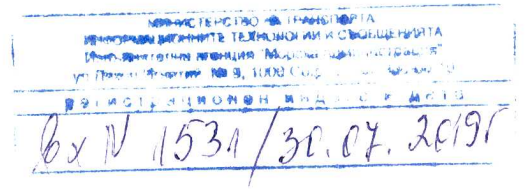 МИНИСТЕРСТВО НА ТРАНСПОРТА
ИНФОРМАЦИОННИТЕ ТЕХНОЛОГИИ И СЪОБЩЕНИЯТА
агенция "Морска администрация"
ул. № 9, 1000
РЕГИСТРАЦИОНЕН ИНДЕКС И ДАТА
Вх N 1531/30.07.2019г